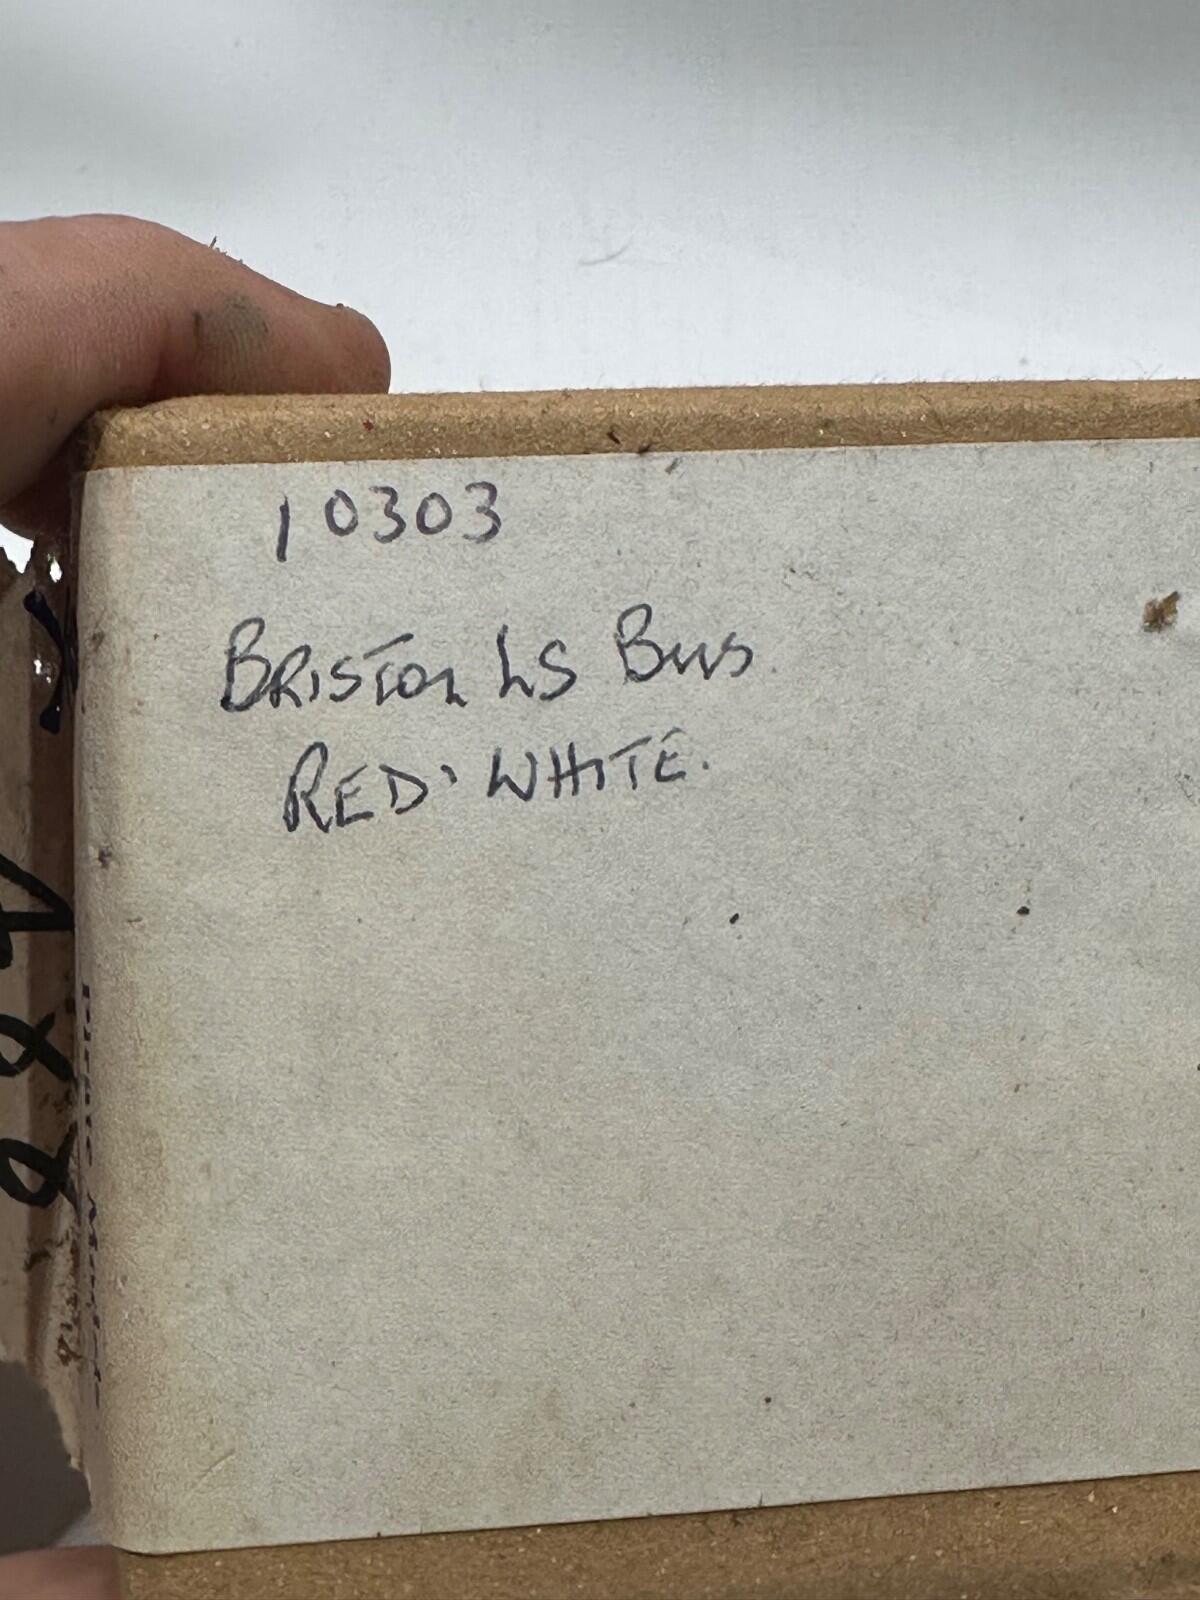 10303
BRISTOL LS BUS.
RED. WHITE.